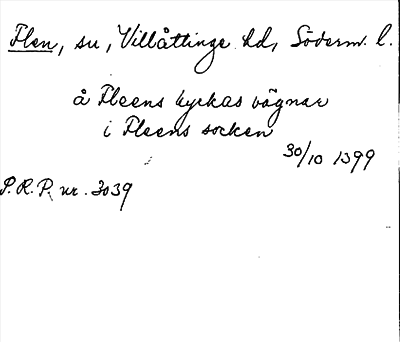 Flen, sn, Villåttinge hd, Söderm. l.
å Fleens kyrkas vägnar
i Fleens socken
30/10 1399
P.R.P. nr. 3039